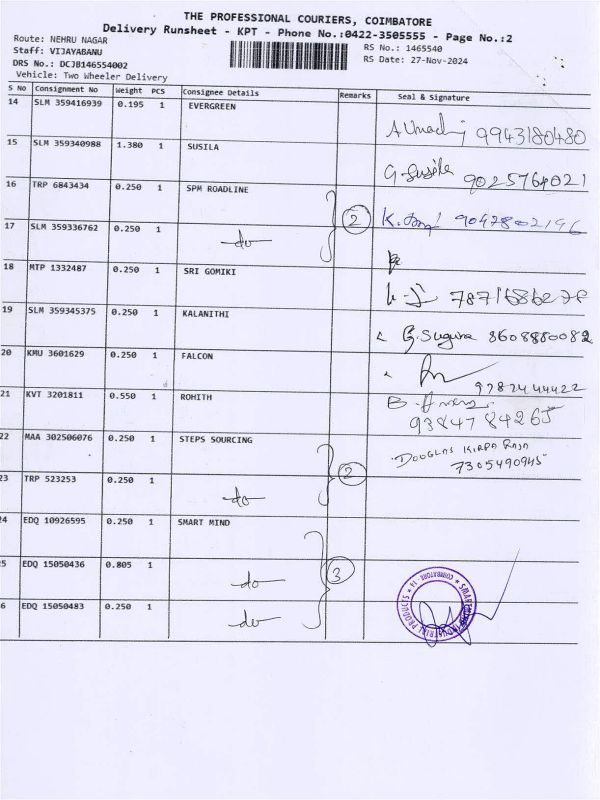 THE PROFESSIONAL COURIERS, COIMBATORE
Delivery Runsheet - KPT - Phone No.:0422-3505555 - Page No.:2
Route: NEHRU NAGAR RS No.: 1465540
Staff: VIJAYABANU RS Date: 27-Nov-2024
DRS No.: DCJB146554002
Vehicle: Two Wheeler Delivery
S No Consignment No Weight PCS Consignee Details Remarks Seal & Signature
14 SLM 359416939 0.195 1 EVERGREEN 9943180480
15 SLM 359340988 1.380 1 SUSILA G. Susila 9025764021
16 TRP 6843434 0.250 1 SPM ROADLINE 2 9047802196
17 SLM 359336762 0.250 1 do
18 MTP 1332487 0.250 1 SRI GOMIKI
19 SLM 359345375 0.250 1 KALANITHI G. Suguna 8608880082
20 KMU 3601629 0.250 1 FALCON
21 KVT 3201811 0.550 1 ROHITH 9384784265
22 MAA 302506076 0.250 1 STEPS SOURCING DOUGLAS KIRPA RAJA
7305490945
23 TRP 523253 0.250 1 do 2
24 EDQ 10926595 0.250 1 SMART MIND
5 EDQ 15050436 0.805 1 do 3
6 EDQ 15050483 0.250 1 do